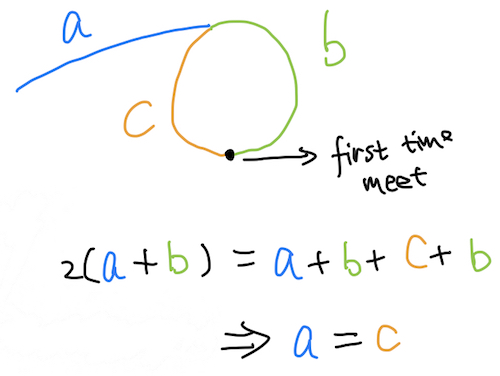 a
b
c
first time
meet
2(a+b) = a+b+c+b
⇒ a = c